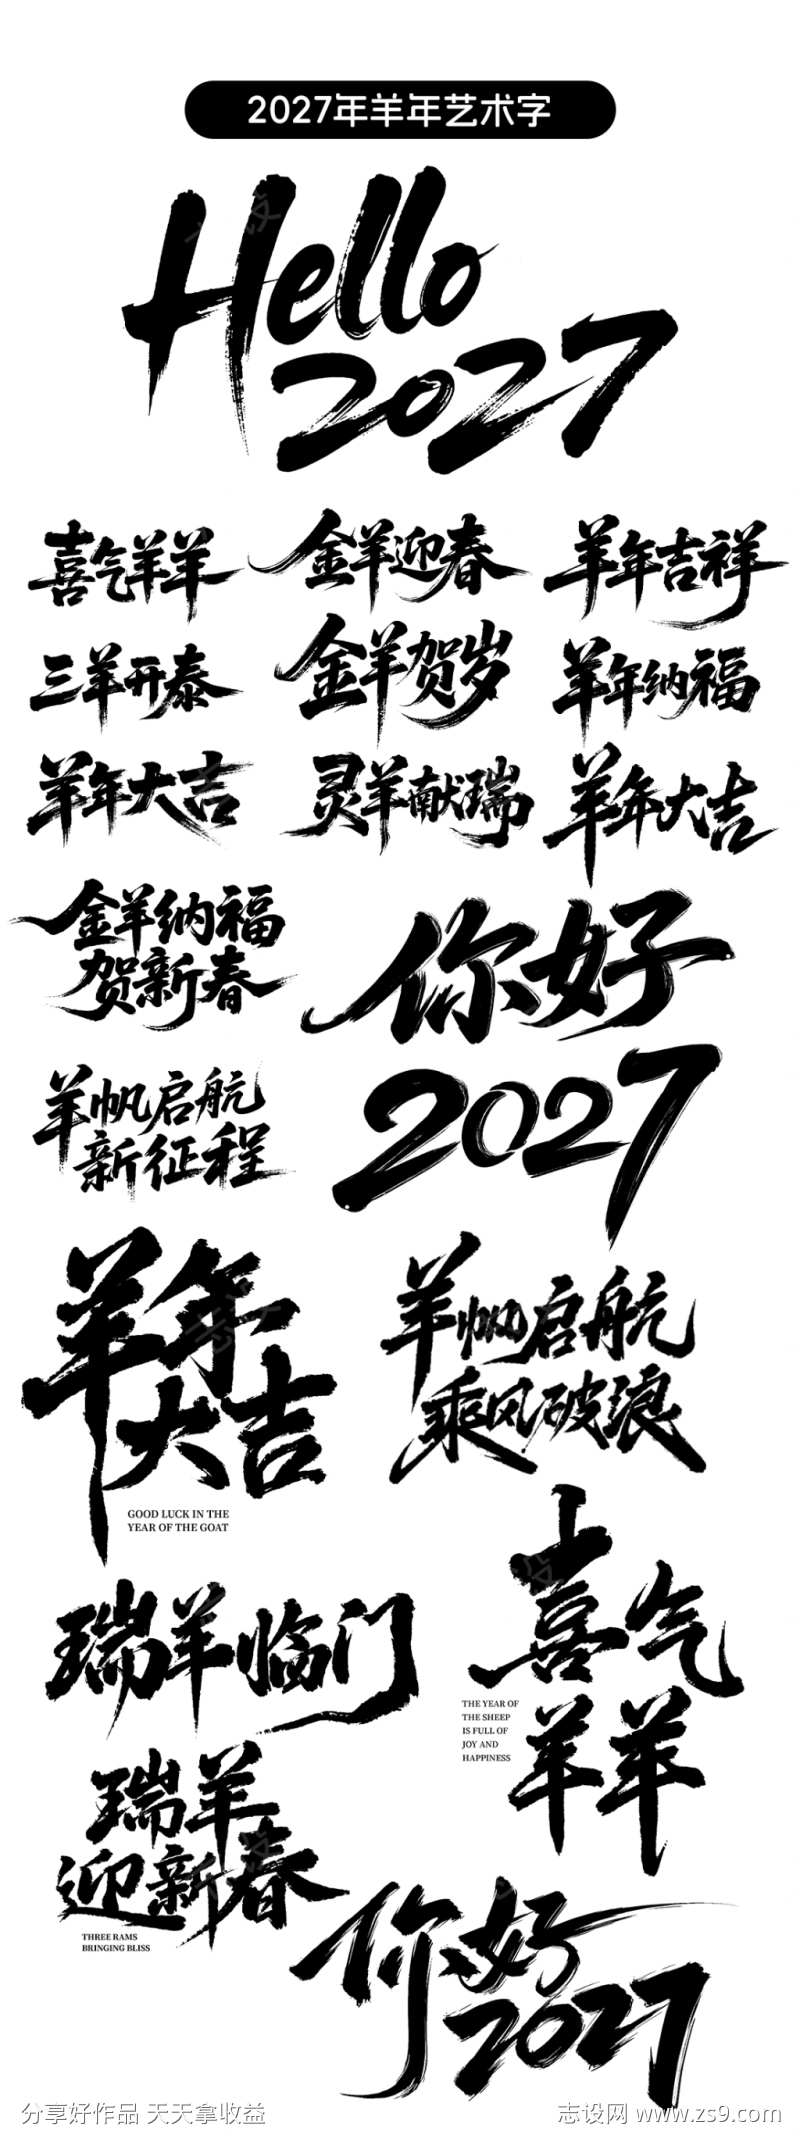 2027年羊年艺术字
Hello
2027
喜气羊羊
金羊迎春
羊年吉祥
三羊开泰
金羊贺岁
羊年纳福
羊年大吉
灵羊献瑞
羊年大吉
金羊纳福
贺新春
你好
2027
羊帆启航
新征程
羊年
大吉
GOOD LUCK IN THE
YEAR OF THE GOAT
羊帆启航
乘风破浪
瑞羊临门
喜气
羊羊
THE YEAR OF
THE SHEEP
IS FULL OF
JOY AND
HAPPINESS
瑞羊
迎新春
THREE RAMS
BRINGING BLISS
你好
2027
分享好作品 天天拿收益
志设网 www.zs9.com